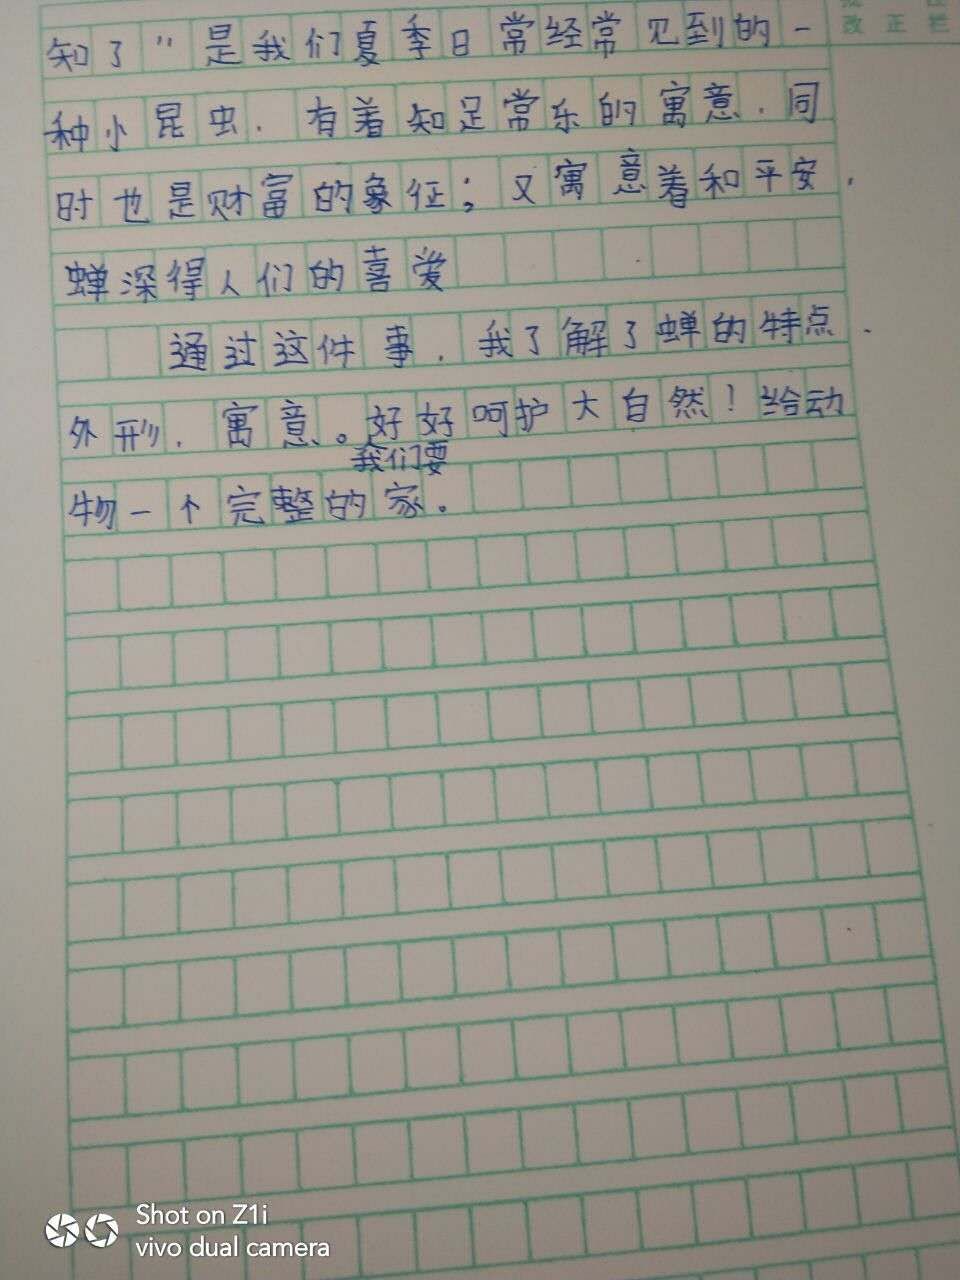 改正栏
知了”是我们夏季日常经常见到的一
种小昆虫.有着知足常乐的寓意.同
时也是财富的象征;又寓意着和平安.
蝉深得人们的喜爱
通过这件事.我了解了蝉的特点.
外形.寓意。好好呵护大自然!给动
我们要
物一个完整的家。
Shot on Z1i
vivo dual camera